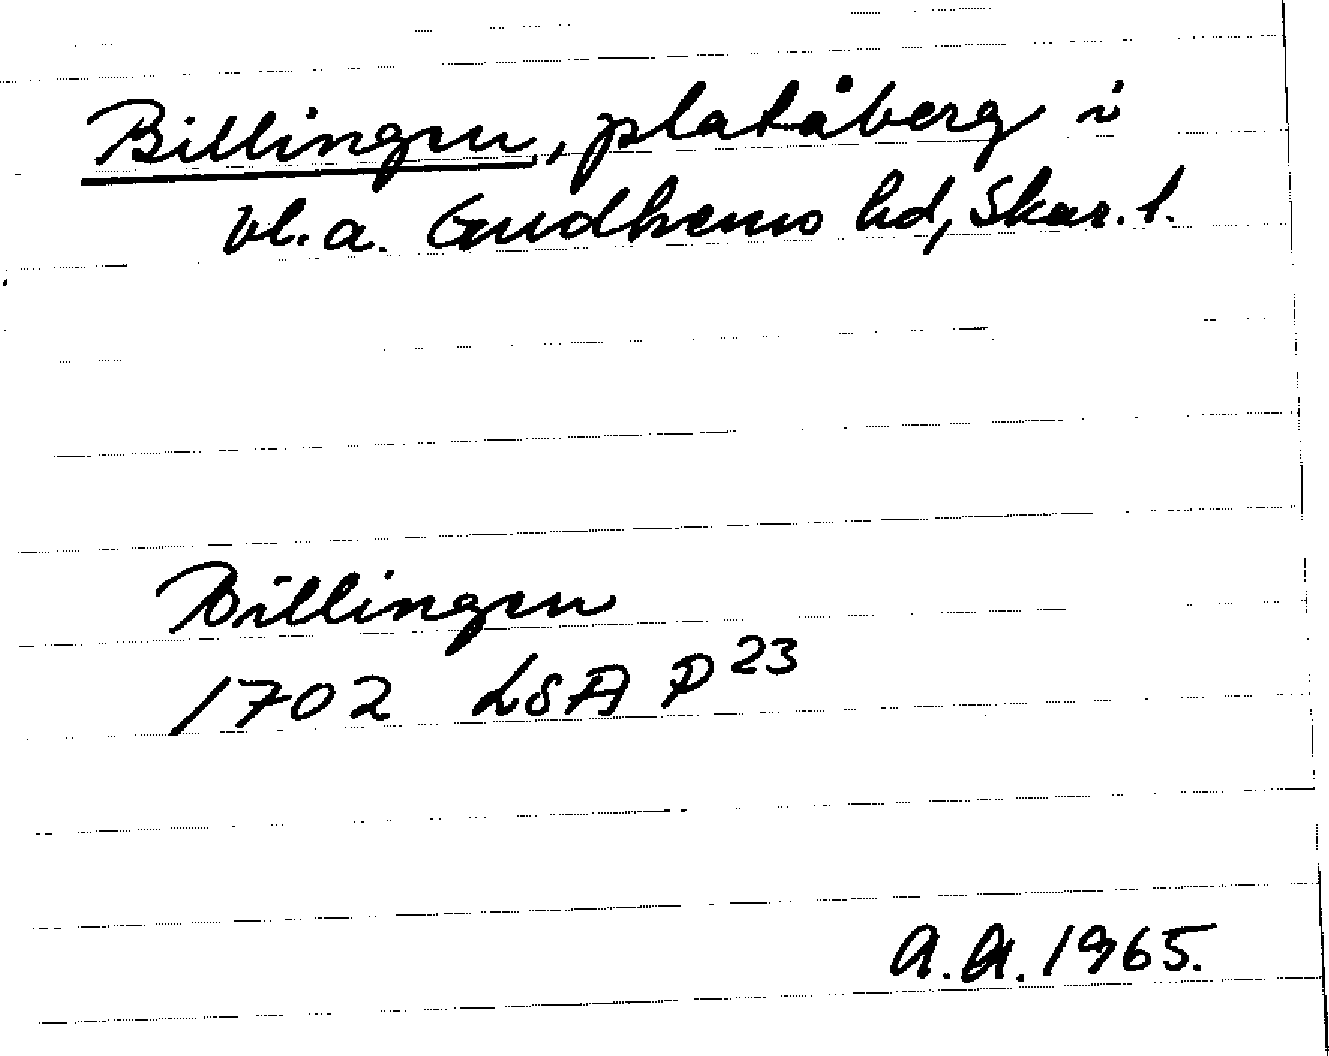 Billingen, platåberg i
bl.a. Gudhems hd, Skar. l.
Billingen
1702 LSA P 23
A.A. 1965.